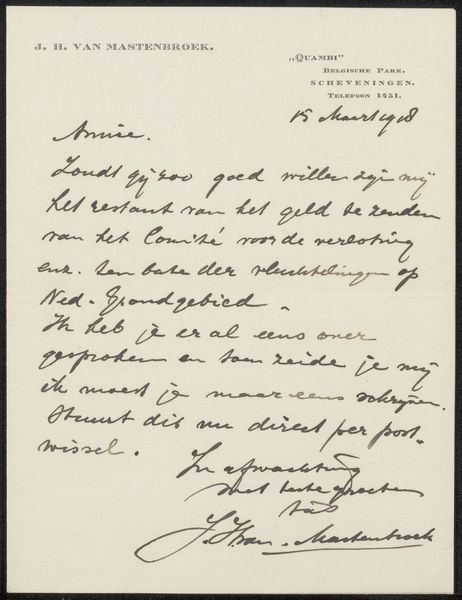 J. H. VAN MASTENBROEK.
„QUAMBI"
BELGISCHE PARK,
SCHEVENINGEN.
TELEFOON 1451.
15 Maart 1918
Amice.
Zoudt gij zoo goed willen zijn mij
het restant van het geld te zenden
van het Comité voor de verloting
enz. ten bate der vluchtelingen op
Ned. Grondgebied.
Ik heb je er al eens over
gesproken en toen zeide je mij
ik moest je maar eens schrijven.
Stuurt dit nu direct per post-
wissel.
In afwachting
met beste groeten
tàv
J.H. van Mastenbroek